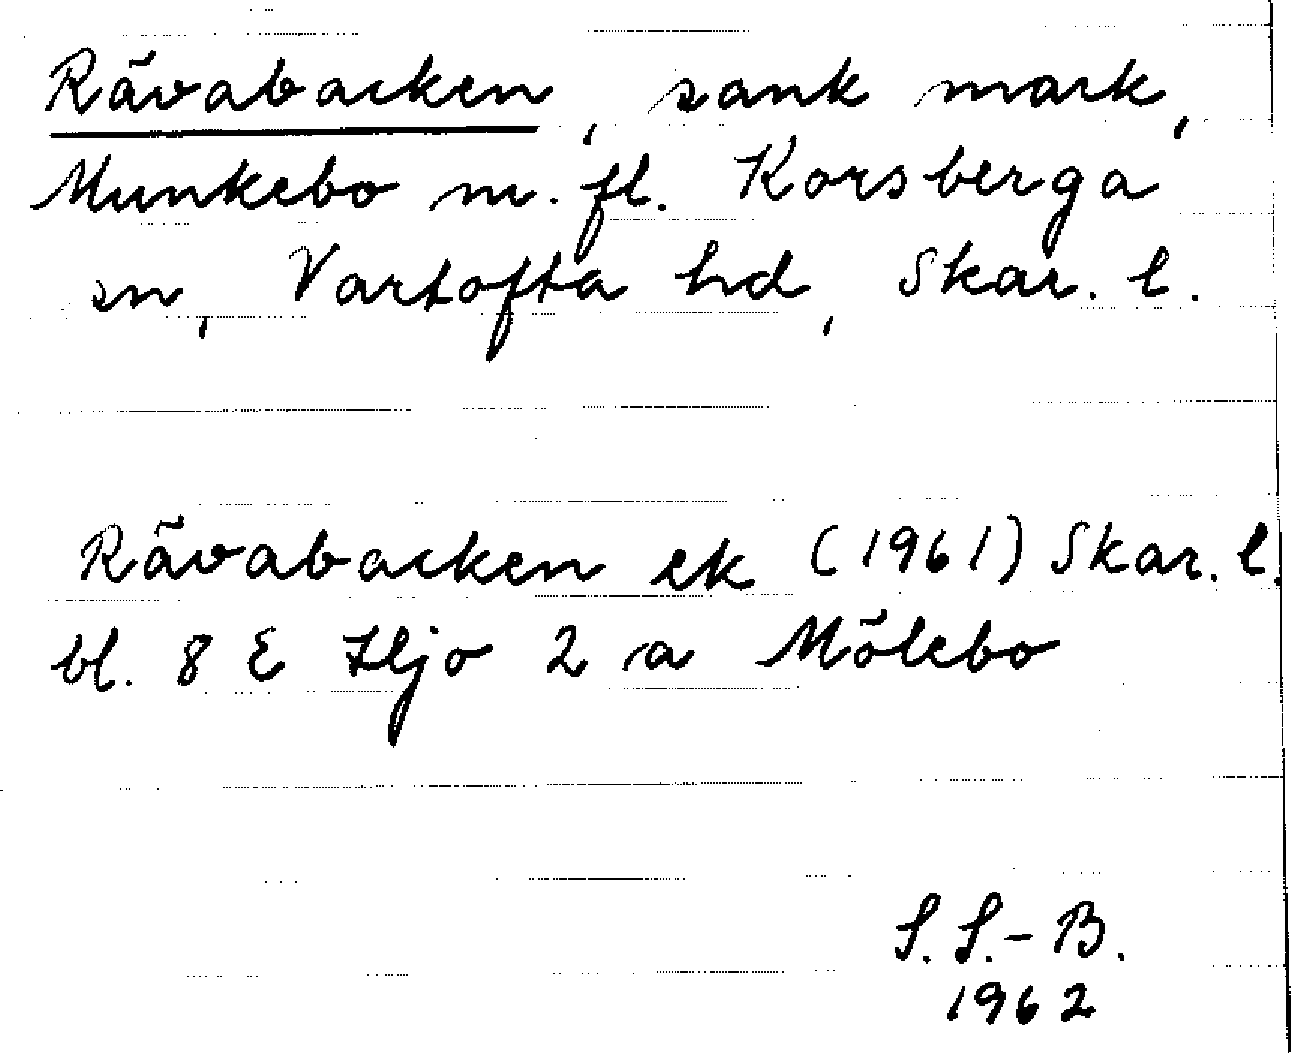 Rävabacken, sank mark,
Munkebo m. fl. Korsberga
sn, Vartofta hd, Skar. l.
Rävabacken ek (1961) Skar. l.
bl. 8 E Hjo 2 a Mölebo
S. S.-B.
1962